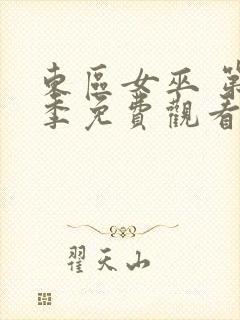 東區女巫 第
季免費觀看
翟天山